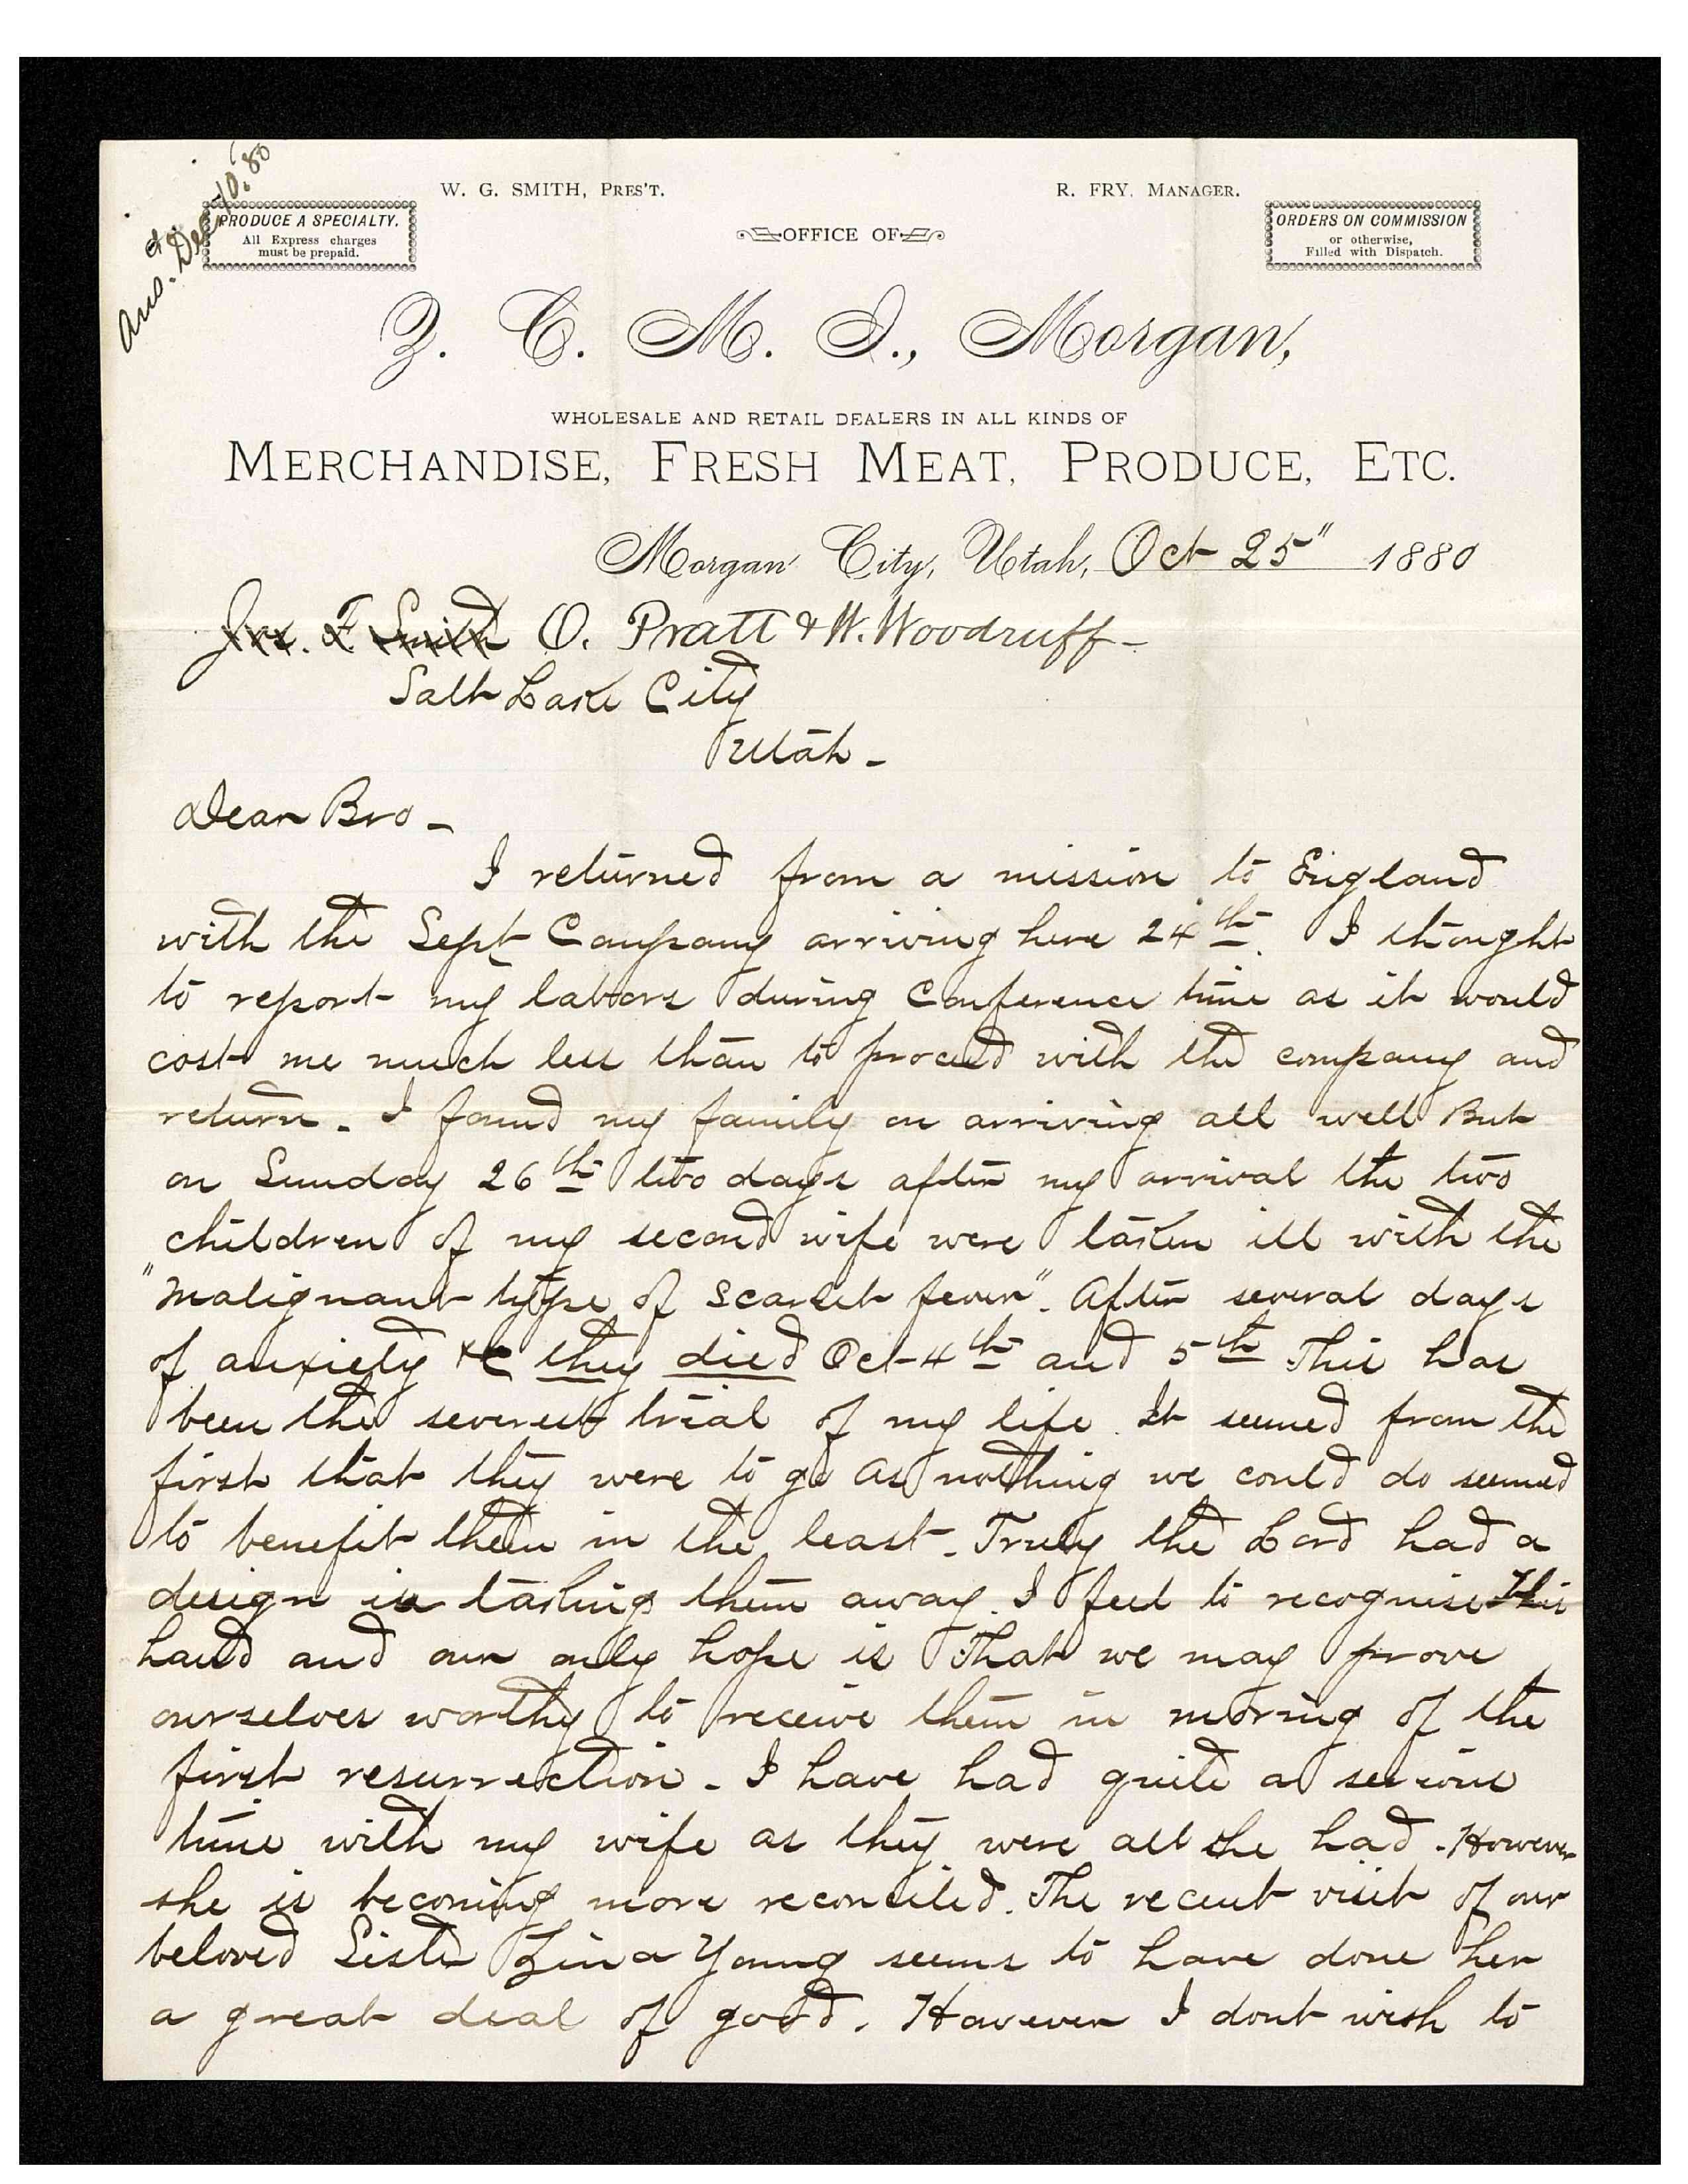 Ans. Dec. 10, 80
W. G. SMITH, PRES'T.
R. FRY, MANAGER.
PRODUCE A SPECIALTY.
All Express charges
must be prepaid.
OFFICE OF
ORDERS ON COMMISSION
or otherwise,
Filled with Dispatch.
Z. C. M. I., Morgan,
WHOLESALE AND RETAIL DEALERS IN ALL KINDS OF
MERCHANDISE, FRESH MEAT, PRODUCE, ETC.
Morgan City, Utah, Oct 25" 1880
Jos. F. Smith O. Pratt & W. Woodruff-
Salt Lake City
Utah-
Dear Bro-
I returned from a mission to England
with the Sept Company arriving here 24th. I thought
to report my labors during Conference time as it would
cost me much less than to proceed with the company and
return. I found my family on arriving all well But
on Sunday 26th two days after my arrival the two
children of my second wife were taken ill with the
"malignant type of scarlet fever". After several days
of anxiety &c they died Oct 4th and 5th This has
been the severest trial of my life. It seemed from the
first that they were to go as nothing we could do seemed
to benefit them in the least. Truly the Lord had a
design in taking them away. I feel to recognise His
hand and our only hope is That we may prove
ourselves worthy to receive them in moring of the
first resurrection. I have had quite a serious
time with my wife as they were all she had. However
she is becoming more reconciled. The recent visit of our
beloved Sister Zina Young seems to have done her
a great deal of good. However I dont wish to